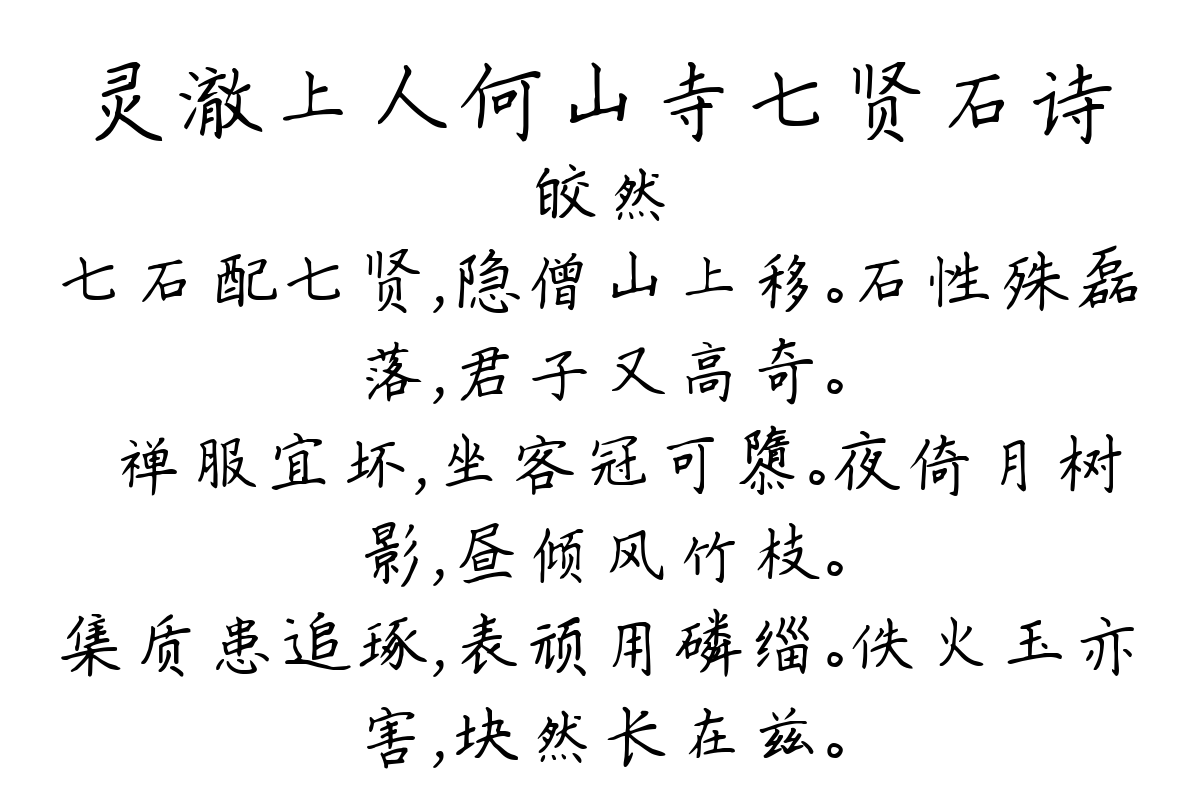 灵澈上人何山寺七贤石诗
皎然
七石配七贤,隐僧山上移。石性殊磊
落,君子又高奇。
禅服宜坏,坐客冠可隳。夜倚月树
影,昼倾风竹枝。
集质患追琢,表顽用磷缁。佚火玉亦
害,块然长在兹。